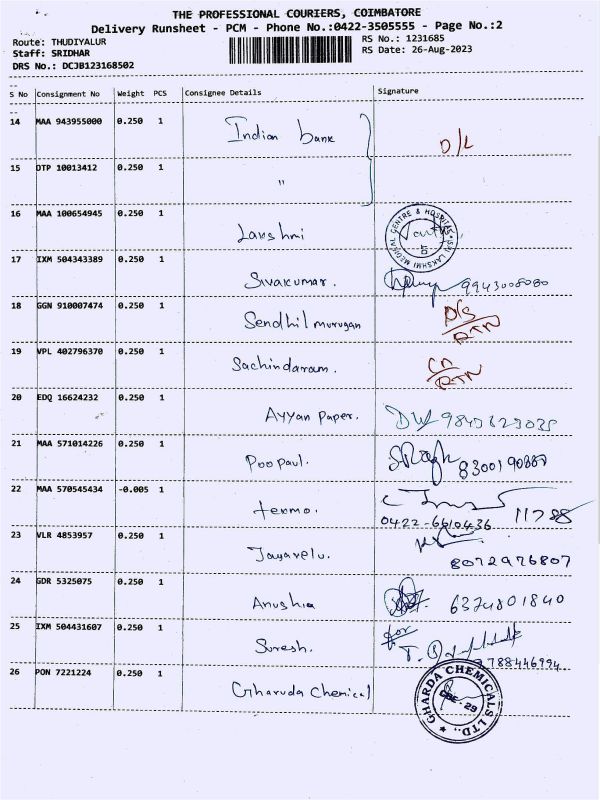 THE PROFESSIONAL COURIERS, COIMBATORE
Delivery Runsheet - PCM - Phone No.:0422-3505555 - Page No.:2
Route: THUDIYALUR
Staff: SRIDHAR
DRS No.: DCJB123168502
RS No.: 1231685
RS Date: 26-Aug-2023
S No Consignment No Weight PCS Consignee Details Signature
14 MAA 943955000 0.250 1 Indian bank D/L
15 OTP 10013412 0.250 1 "
16 MAA 100654945 0.250 1 Lakshmi
SRI LAKSHMI MEDICAL CENTRE & HOSPITAL
17 IXM 504343389 0.250 1 Sivakumar. 9943008080
18 GGN 910007474 0.250 1 Sendhil murugan D/S RTN
19 VPL 402796370 0.250 1 Sachindaram. CN RTN
20 EDQ 16624232 0.250 1 Ayyan paper. 9843623035
21 MAA 571014226 0.250 1 Poopaul. 8300190887
22 MAA 570545434 -0.005 1 termo. 0422-6610436 11788
23 VLR 4853957 0.250 1 Jayavelu. 8072976807
24 GDR 5325075 0.250 1 Anushia 6374801840
25 IXM 504431607 0.250 1 Suresh. for 9788446994
26 PON 7221224 0.250 1 Gharuda Chemical
GHARDA CHEMICALS LTD.,
CBE-29